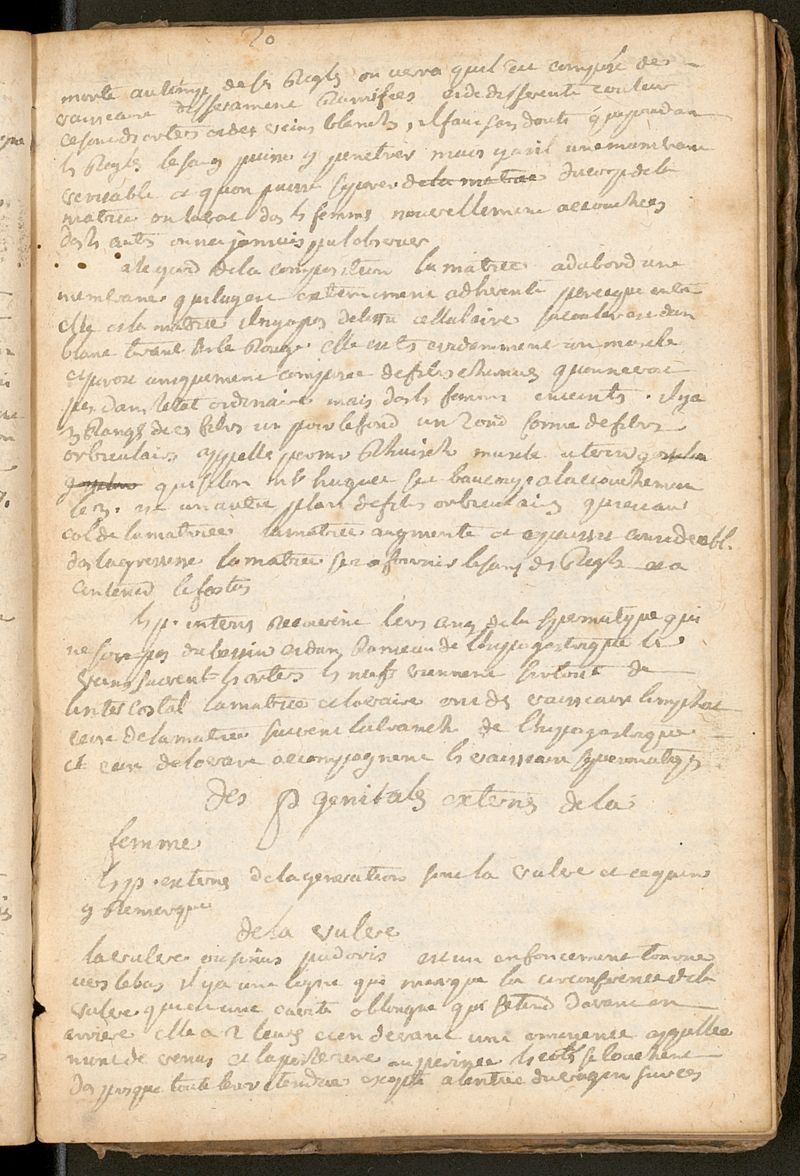 20
morte au temps de ses Regles on verra quil est composé de
vaisseaux differament Ramifies et de differente couleur
ce sont des arteres et des veines blanches, il faut sans doute que pendant
ls Regles le sang puisse y penetrer mais y a til une membrane
veritable et quon puisse separer de la matrice du corps de la
matrice on la voit dans ls femmes nouvellement accouchées
dans ls autres on ne la jamais pu observer
a legard de la composition la matrice a dabord une
membrane qui luy est exterieurement adherente parceque entre
elle et la matrice il ny a pas de tissu cellulaire sa couleur est dun
blanc tirant sur le Rouge elle est evidemment un muscle
et presque uniquement composée de fibres charnues quon ne voit
pas dans letat ordinaire mais dans ls femmes enceintes. il y a
3 Rangs de ces fibres un pour le fond un 2ond formé de fibres
orbiculaires appellé par mr Rhuisch muscle uterin
qui selon mr sert beaucoup a laccouchement
le 3. est un autre plan de fibres orbiculaires qui est au
col de la matrice la matrice augmente et epaissit considerabl.
dans la grossesse la matrice sert a fournir le sang ds Regles et a
contenir le foetus
ls p. internes Recoivent leurs ang de la spermatique qui
ne sort pas du bassin et dun Rameau de lhypogastrique ls
veines suivent ls arteres ls nerfs viennent surtout de
lintercostal la matrice et lovaire ont ds vaisseaux limphat
ceux de la matrice suivent la branche de lhypogastrique
et ceux de lovaire accompagnent ls vaisseaux spermatiqs
Des p genitales externes de la
femme
ls p. externes de la generation sont la vulve et ce quon
y Remarque
De la vulve
la vulve ou sinus pudoris est un enfoncement tourné
vers le bas il y a une ligne qui marque la circonference de la
vulve qui est une cavité oblongue qui setend davant en
arriere elle a 2 levres et en devant une eminence appellée
mont de venus et la posterieure au perinée ls cotés se touchent
dans presque toute leur etendue excepté a lentrée du vagin sur ces